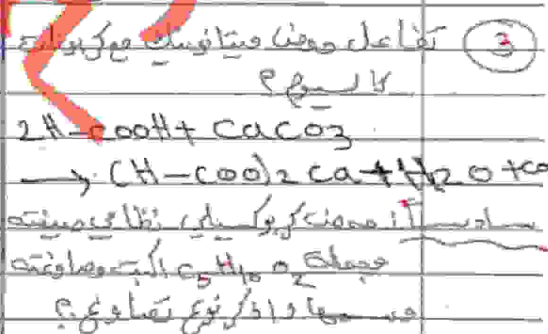 3 تفاعل حمض ميتانويك مع كربونات
كالسيوم؟
2H-COOH + CaCO3
→ (H-COO)2 Ca + H2O + CO
سادساً: حمض كربوكسيلي نظامي صيغته
مجملة C5H10O2 اكتب
و اذكر نوع تصاوغ؟